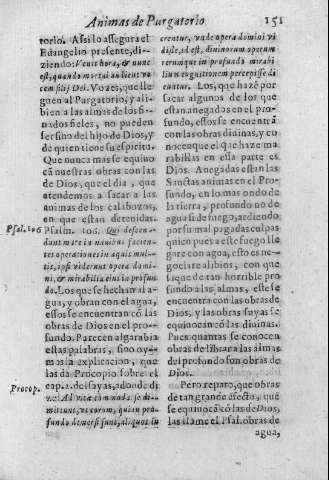 Animas de Purgatorio 151
torio. Assi lo assegura el
Euangelio presente, di-
ziendo: Venit hora, & nunc
est, quando mortui audient vo-
cem filij Dei. Vozes, que lle
guen al Purgatorio, y ali-
bien a las almas de los fi-
nados fieles, no pueden
ser sino del hijo de Dios, y
de quien tiene su espiritu.
Que nunca mas se equiuo
cā nuestras obras con las
de Dios, que el dia, que
atendemos a sacar a las
animas de los calaboços,
en que estan detenidas.
Psal. 106 Psalm. 106. Qui descen-
dunt mare in nauibus facien-
tes operationes in aquis mul-
tis, ipsi viderunt opera domi-
ni, & mirabilia eius in profun
do. Los que se hechan al a-
gua, y obran con el agua,
essos se encuentran cō las
obras de Dios en el pro-
fundo. Parecen algarabia
estas palabras, sino oy-
mos la explicacion, que
las da Procopio sobre el
Procop. cap. 2. de Isayas, adonde di
ze: Ad vitā commoda se di-
mittunt, vt eorum, qui in pro-
fundo demersi sunt, aliquot in
crentur, vnde opera domini vi
disse, id est, diuinorum operum
rerumque in profundo mirabi
lium cognitionem percepisse di
cuntur. Los, que hazē por
sacar algunos de los que
estan anegados en el pro-
fundo, essos se encuentrā
con las obras diuinas, y co
nocen que el que haze ma
rabillas en essa parte es
Dios. Anegadas estan las
Sanctas animas en el Pro-
fundo, en lo mas ondo de
la tierra, profundo no de
agua si de fuego, ardiendo
por su mal pagadas culpas
quien pues a este fuego lle
gare con agua, esto es ne-
gociare alibios, con que
saque de tan horrible pro
fundo a las almas, este se
encuentra con las obras de
Dios, y las obras suyas se
equiuocan cō las diuinas.
Pues quantas se conocen
obras de librar a las almas
del profundo son obras de
Dios.
Pero reparo, que obras
de tan grande afecto, que
se equiuocā cō las de Dios,
las llame el Psal. obras de
agua,